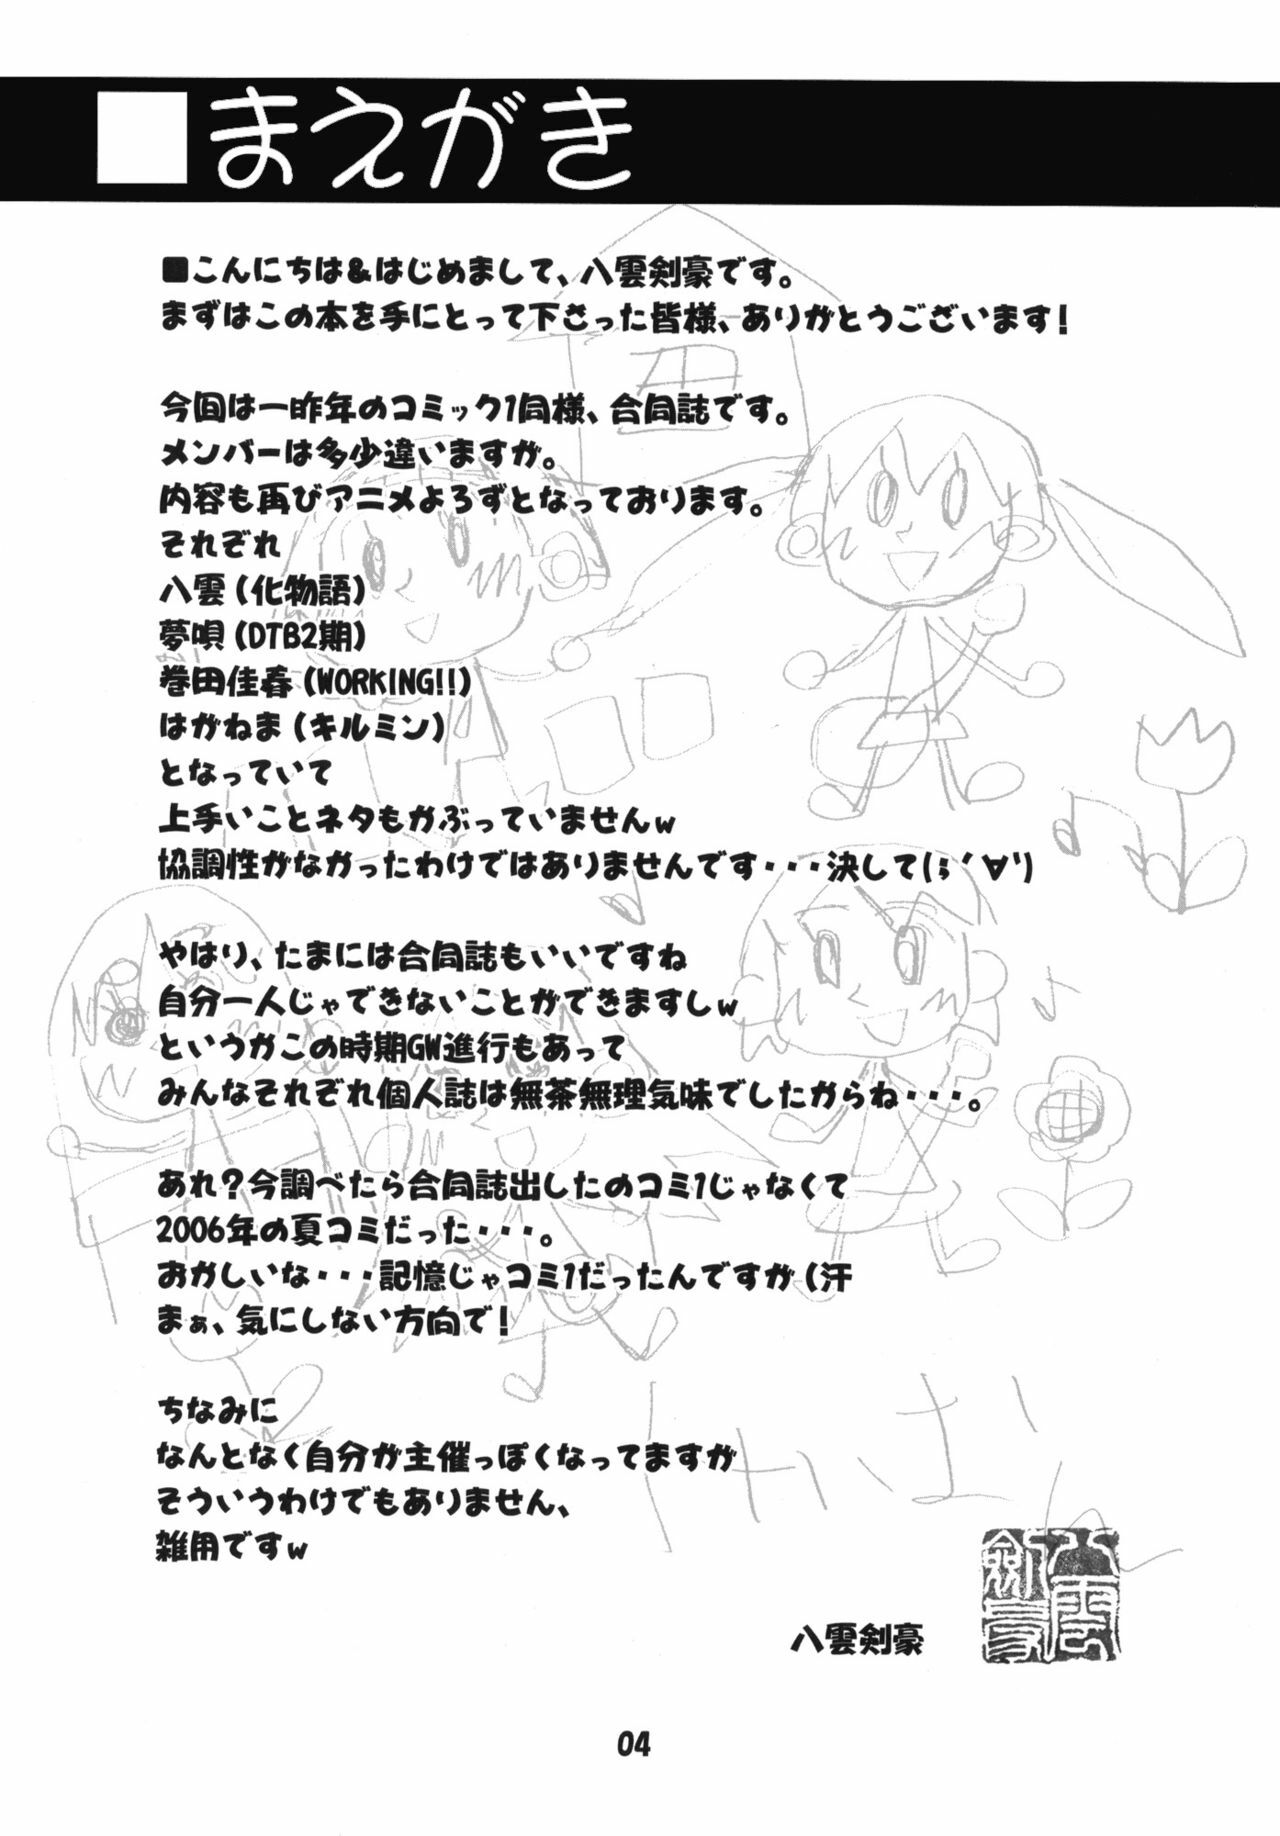 ■まえがき
■こんにちは&はじめまして、八雲剣豪です。
まずはこの本を手にとって下さった皆様、ありがとうございます!
今回は一昨年のコミック1同様、合同誌です。
メンバーは多少違いますが。
内容も再びアニメよろずとなっております。
それぞれ
八雲(化物語)
夢唄(DTB2期)
巻田佳春(WORKING!!)
はがねま(キルミン)
となっていて
上手いことネタもかぶっていませんw
協調性がなかったわけではありませんです・・・決して(;´∀`)
やはり、たまには合同誌もいいですね
自分一人じゃできないことができますしw
というかこの時期GW進行もあって
みんなそれぞれ個人誌は無茶無理気味でしたからね・・・。
あれ?今調べたら合同誌出したのコミ1じゃなくて
2006年の夏コミだった・・・。
おかしいな・・・記憶じゃコミ1だったんですが(汗
まぁ、気にしない方向で!
ちなみに
なんとなく自分が主催っぽくなってますが
そういうわけでもありません、
雑用ですw
八雲剣豪
八雲剣豪
04